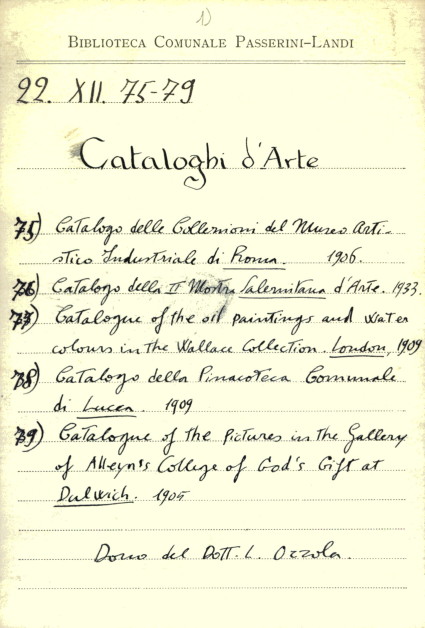 1)
BIBLIOTECA COMUNALE PASSERINI-LANDI
22. XII. 75-79
Cataloghi d'Arte
75) Catalogo delle Collezioni del Museo Arti-
stico Industriale di Roma. 1906.
76) Catalogo della IIª Mostra Salernitana d'Arte. 1933.
77) Catalogue of the oil paintings and water
colours in the Wallace Collection. London, 1909
78) Catalogo della Pinacoteca Comunale
di Lucca. 1909
79) Catalogue of the pictures in the Gallery
of Alleyn's College of God's Gift at
Dulwich. 1905
Dono del Dott. L. Ozzola.